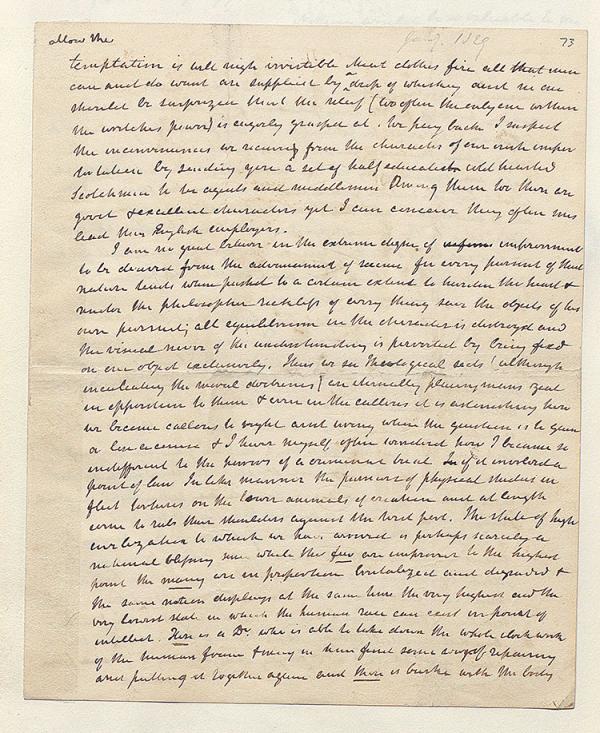 allow the
Jan 9. 1829
73
temptation is well nigh invincible Meat clothes fire all that men
can and do want are supplied by a drop of whiskey and no one
should be surprized that the relief (too often the only one within
the wretches power) is eagerly grasped at. We pay back I suspect
the inconveniences we receive from the character of our irish
by sending you a set of half educated cold hearted
Scotchmen to be agents and middlemen Among them too there are
good & excellent characters yet I can conceive they often mis
lead their English employers.
I am no great believer in the extreme degree of improvement
to be derived from the advancement of science for every pursuit of that
nature tends when pushed to a certain extent to harden the heart &
render the philosopher reckless of every thing save the objects of his
own pursuit; all equilibrium in the character is destroyd and
the visual nerve of the understanding is perverted by being fixd
on one object exclusively. Thus we see theological sects (although
inculcating the moral doctrines) are eternally placing mans zeal
in opposition to them & even in the it is astonishing how
we become callous to right and wrong when the question is to gain
or lose a cause & I have myself often wondered how I became so
indifferent to the horrors of a criminal trial if it involved a
point of law. In like manner the pursuers of physical studies in
flict tortures on the lower animals of creation and at length
come to rub their shoulders against the West port. The state of high
civilization to which we have arrived is perhaps scarcely a
national blessing since while the few are improved to the highest
point the many are in proportion brutalized and degraded &
the same nation displays at the same time the very highest and the
very lowest state in which the human race can exist in point of
intellect. Here is a Dr. who is able to take down the whole clock work
of the human frame & may in time find some way of repairing
and putting it together again and there is burke with the body